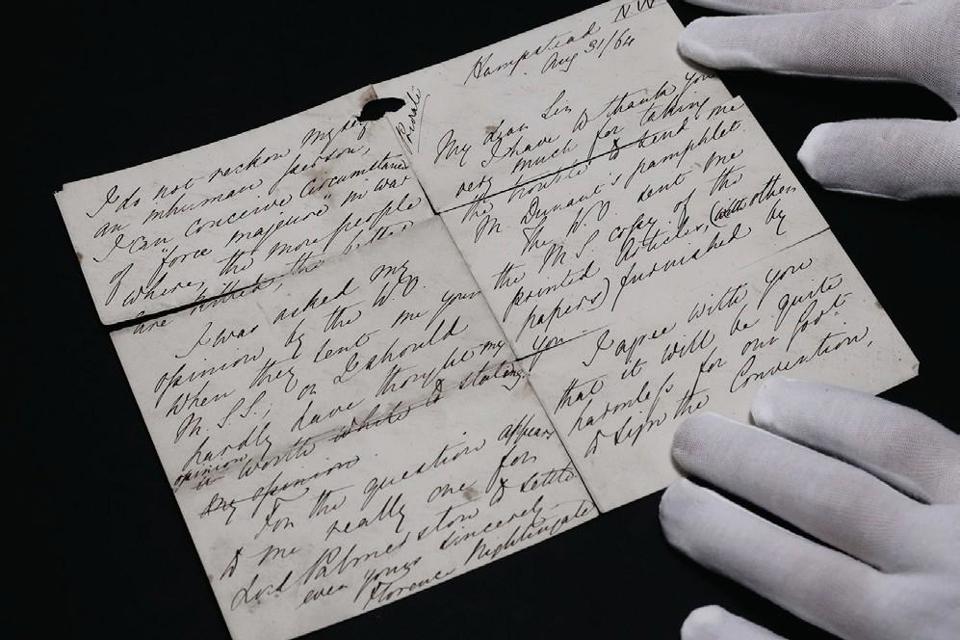 Hampstead NW
Aug 31/64
Private
My dear Sir
I have to thank you
very much for taking
the trouble to send me
M. Dunant's pamphlet.
The W.O. sent me
the M.S. copy of the
printed Articles, (with others
papers) furnished by
you.
I agree with you
that it will be quite
harmless for our Govt
to sign the Convention,
I do not reckon myself
an inhuman person,
I can conceive circumstances
of "force majeure" in war
where, the more people
are killed, the better
I was asked my
opinion by the W.O.
when they sent me your
M.S.S.; or I should
hardly have thought my
opinion
worth while to stating
any opinion.
For the question appears
to me really one for
Lord Palmerston to settle
ever yours sincerely
Florence Nightingale